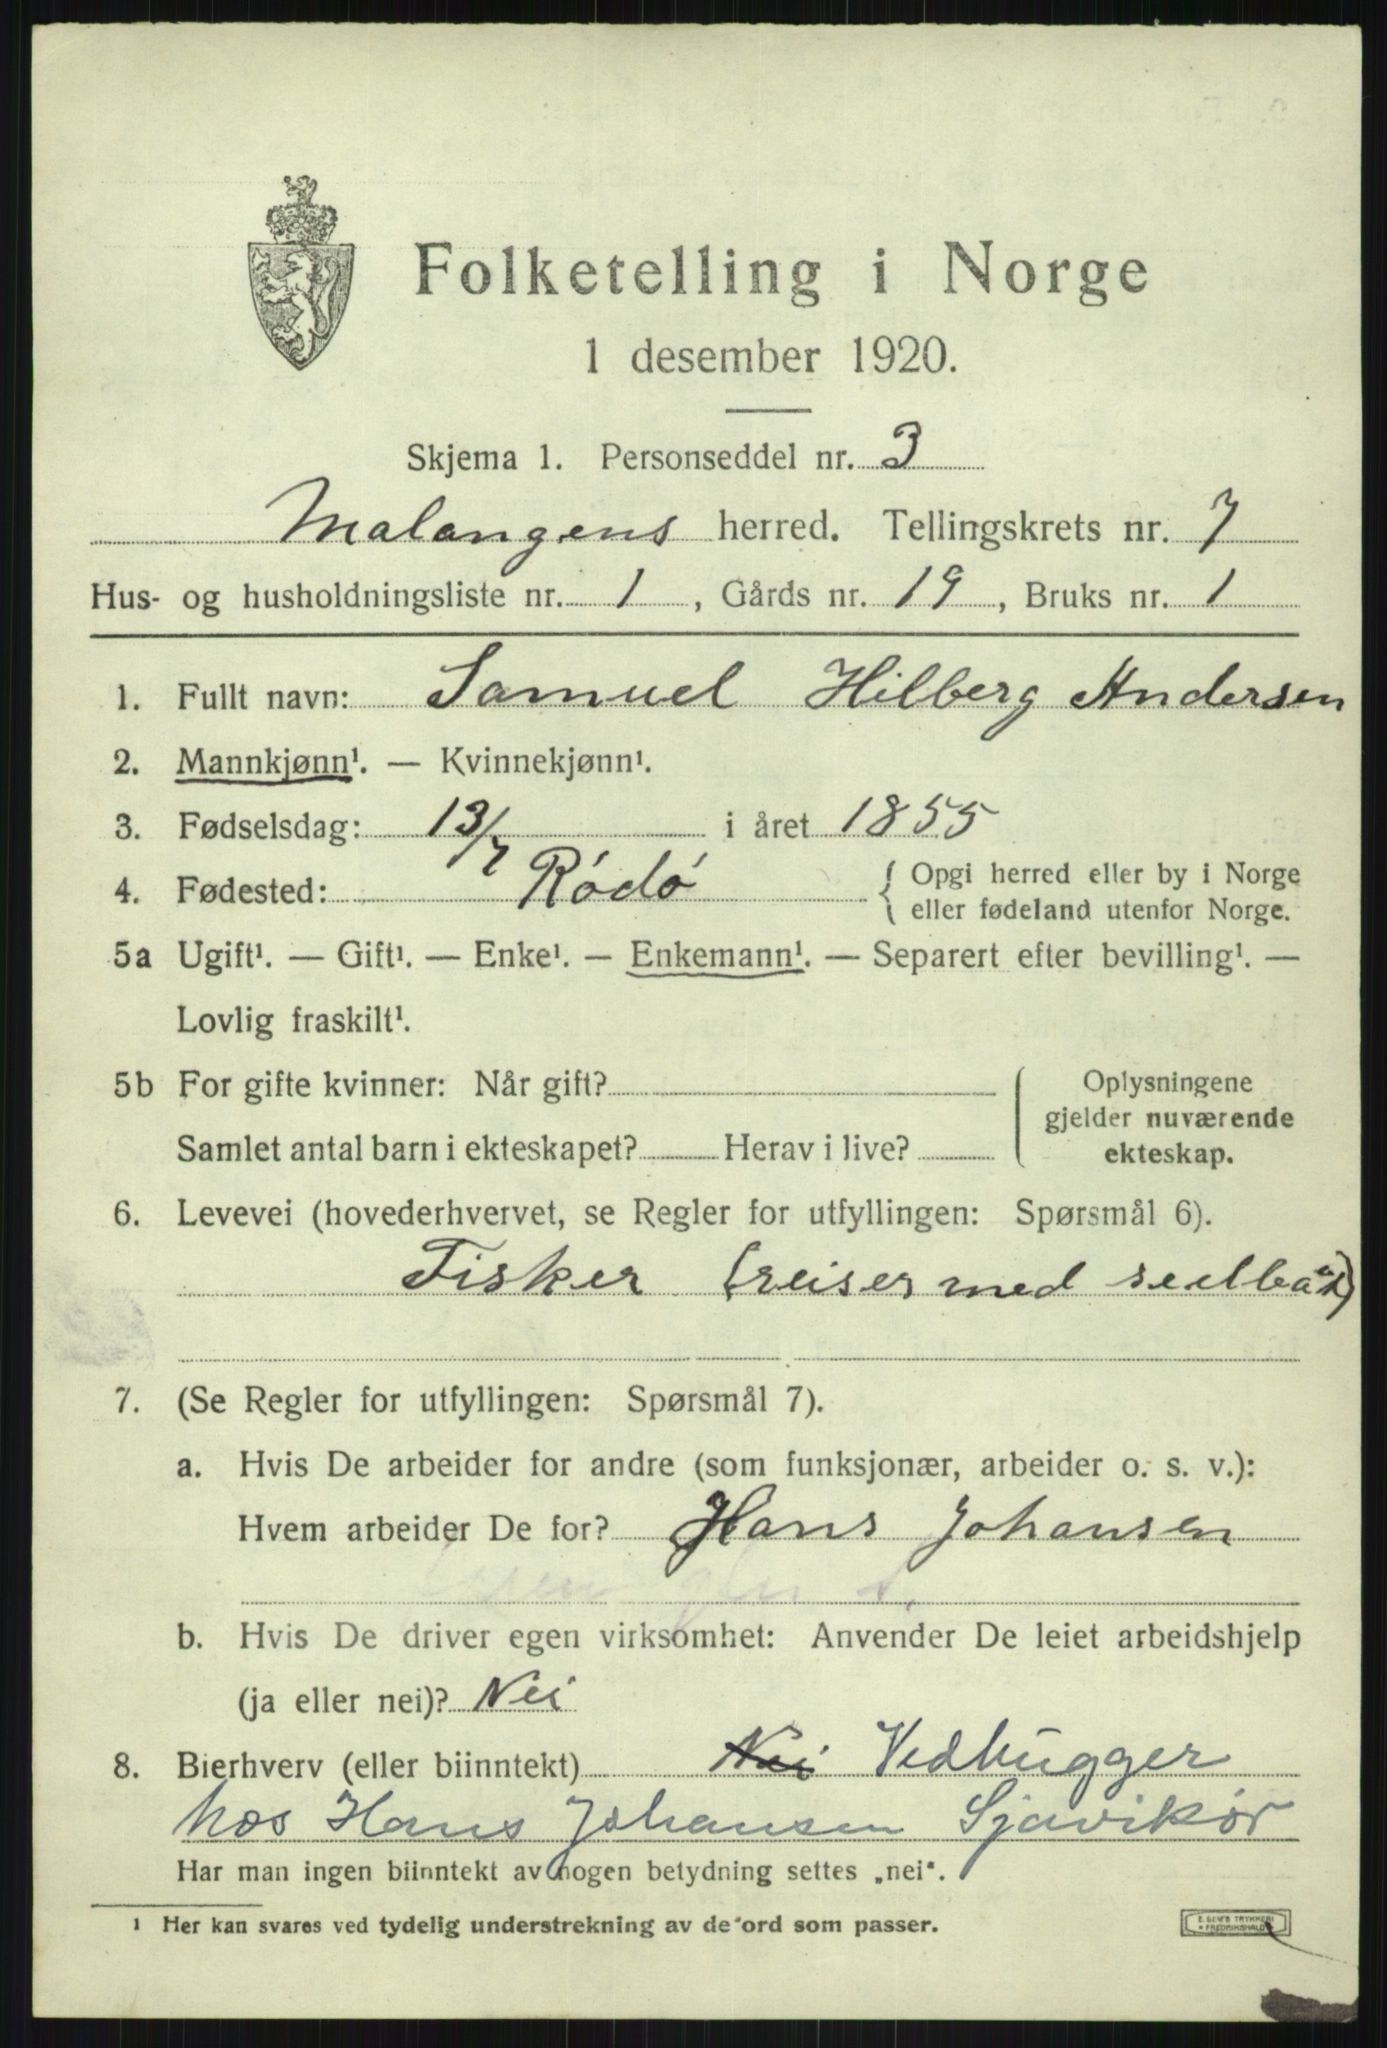 Folketelling i Norge
1 desember 1920.
Skjema 1. Personseddel nr. 3
Malangens herred. Tellingskrets nr. 7
Hus- og husholdningsliste nr. 1, Gårds nr. 19, Bruks nr. 1
1. Fullt navn: Samuel Hilberg Andersen
2. Mannkjønn¹. — Kvinnekjønn¹.
3. Fødselsdag: 13/7 i året 1855
4. Fødested: Ródó { Opgi herred eller by i Norge
eller fødeland utenfor Norge.
5a Ugift¹. — Gift¹. — Enke¹. — Enkemann¹. — Separert efter bevilling¹. —
Lovlig fraskilt¹.
5b For gifte kvinner: Når gift?
Samlet antal barn i ekteskapet? Herav i live?
Oplysningene
gjelder nuværende
ekteskap.
6. Levevei (hovederhvervet, se Regler for utfyllingen: Spørsmål 6).
Fisker (reiser med
7. (Se Regler for utfyllingen: Spørsmål 7).
a. Hvis De arbeider for andre (som funksjonær, arbeider o. s. v.):
Hvem arbeider De for? Hans Johansen
b. Hvis De driver egen virksomhet: Anvender De leiet arbeidshjelp
(ja eller nei)? Nei
8. Bierhverv (eller biinntekt) Nei Vedhugger
hos Hans Johansen
Har man ingen biinntekt av nogen betydning settes „nei“.
¹ Her kan svares ved tydelig understrekning av de ord som passer.
E. SEM'S TRYKKERI
FREDRIKSHALD